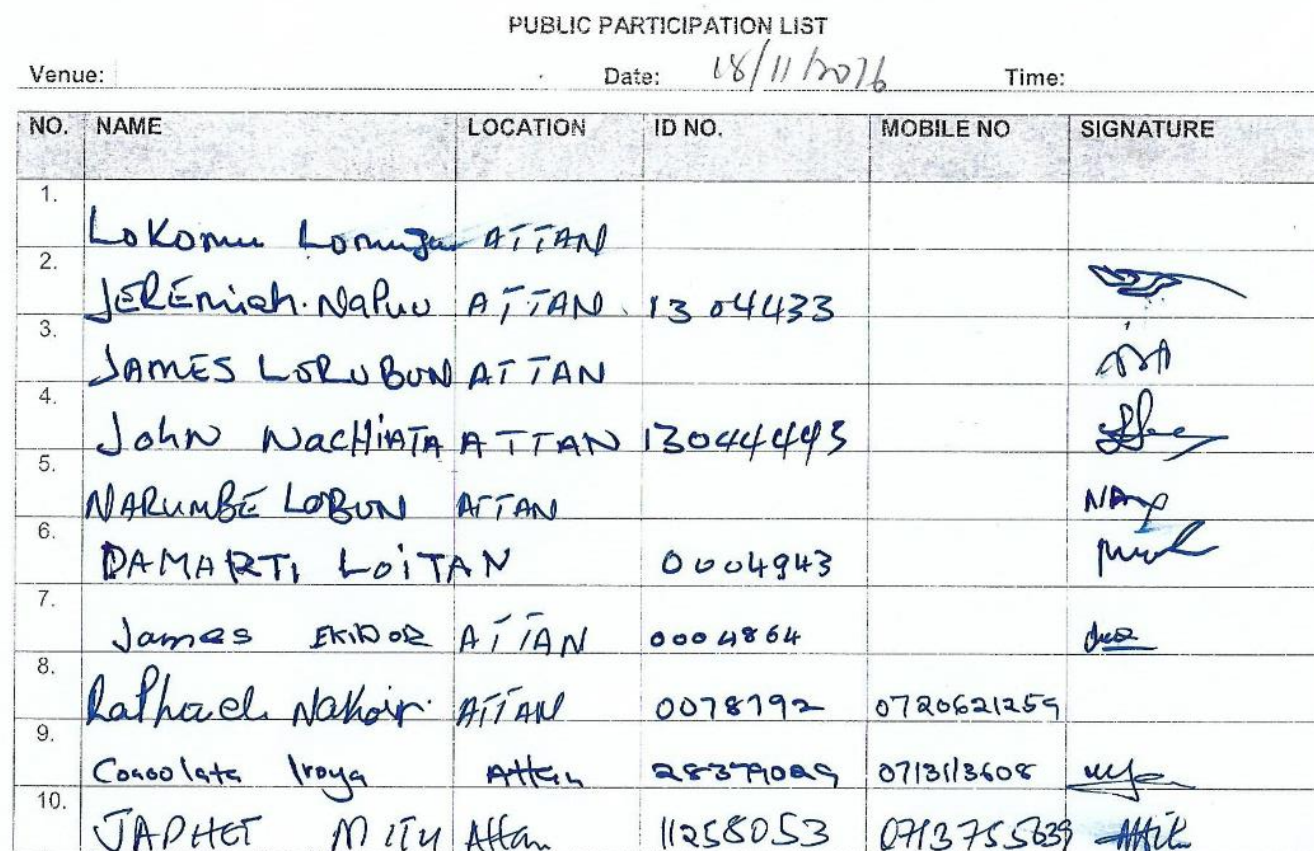 PUBLIC PARTICIPATION LIST
Venue: Date: 18/11/2016 Time:
NO. NAME LOCATION ID NO. MOBILE NO SIGNATURE
1. LoKomu ATTAN
2. JEREmiah. Napuu ATTAN. 1304433
3. JAMES LORUBUN ATTAN
4. John NacHiATA ATTAN 13044443
5. NARUMBE LOBUN ATTAN
6. DAMARTI LoiTAN 0004943
7. James EKIDOR ATTAN 0004864
8. Raphael. Nakoir. ATTAN 0078792 0720621259
9. Consolata Iroya Attan 28379029 0713113608
10. JAPHET MITU Attan 11258053 0713755639